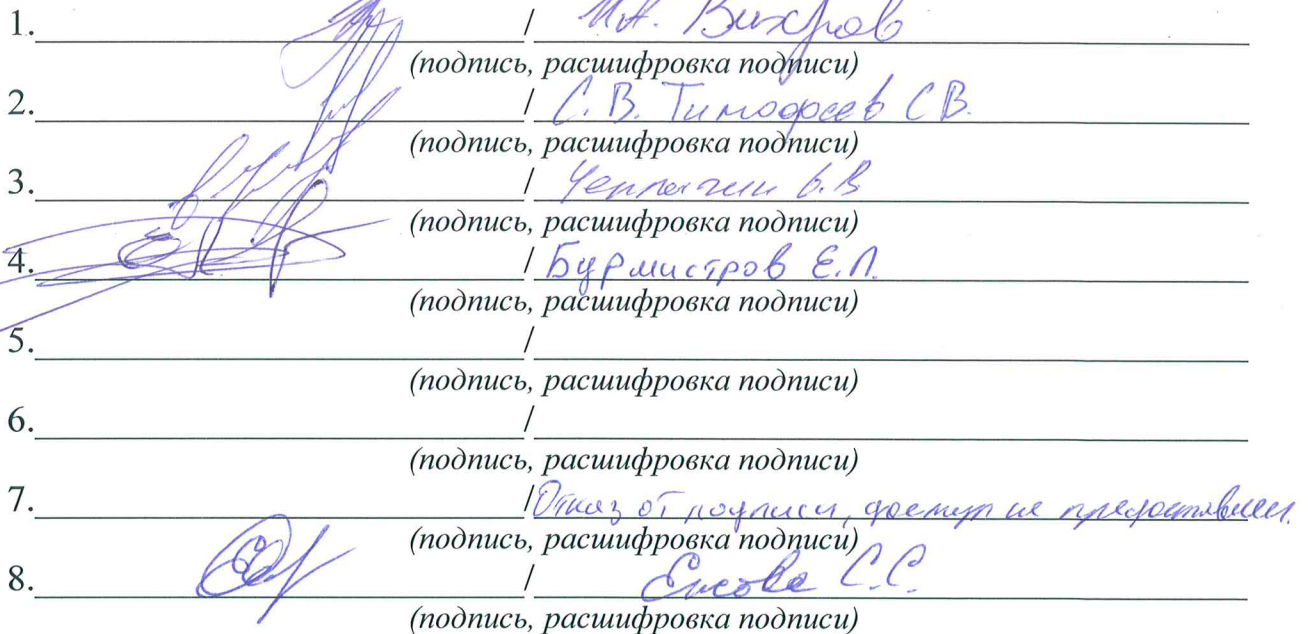 1. / И.А. Вихров
(подпись, расшифровка подписи)
2. / С.В. Тимофеев С.В.
(подпись, расшифровка подписи)
3. / В.В
(подпись, расшифровка подписи)
4. / Бурмистров Е.Л.
(подпись, расшифровка подписи)
5. /
(подпись, расшифровка подписи)
6. /
(подпись, расшифровка подписи)
7. / Отказ от подписи, доступ не предоставлен.
(подпись, расшифровка подписи)
8. / С.С.
(подпись, расшифровка подписи)